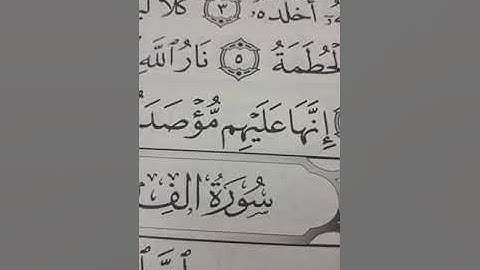 أَخۡلَدَهُۥ ٣ كَلَّا
ٱلۡحُطَمَةُ ٥ نَارُ ٱللَّهِ
إِنَّهَا عَلَيۡهِم مُّؤۡصَدَ
سُورَةُ الفِ